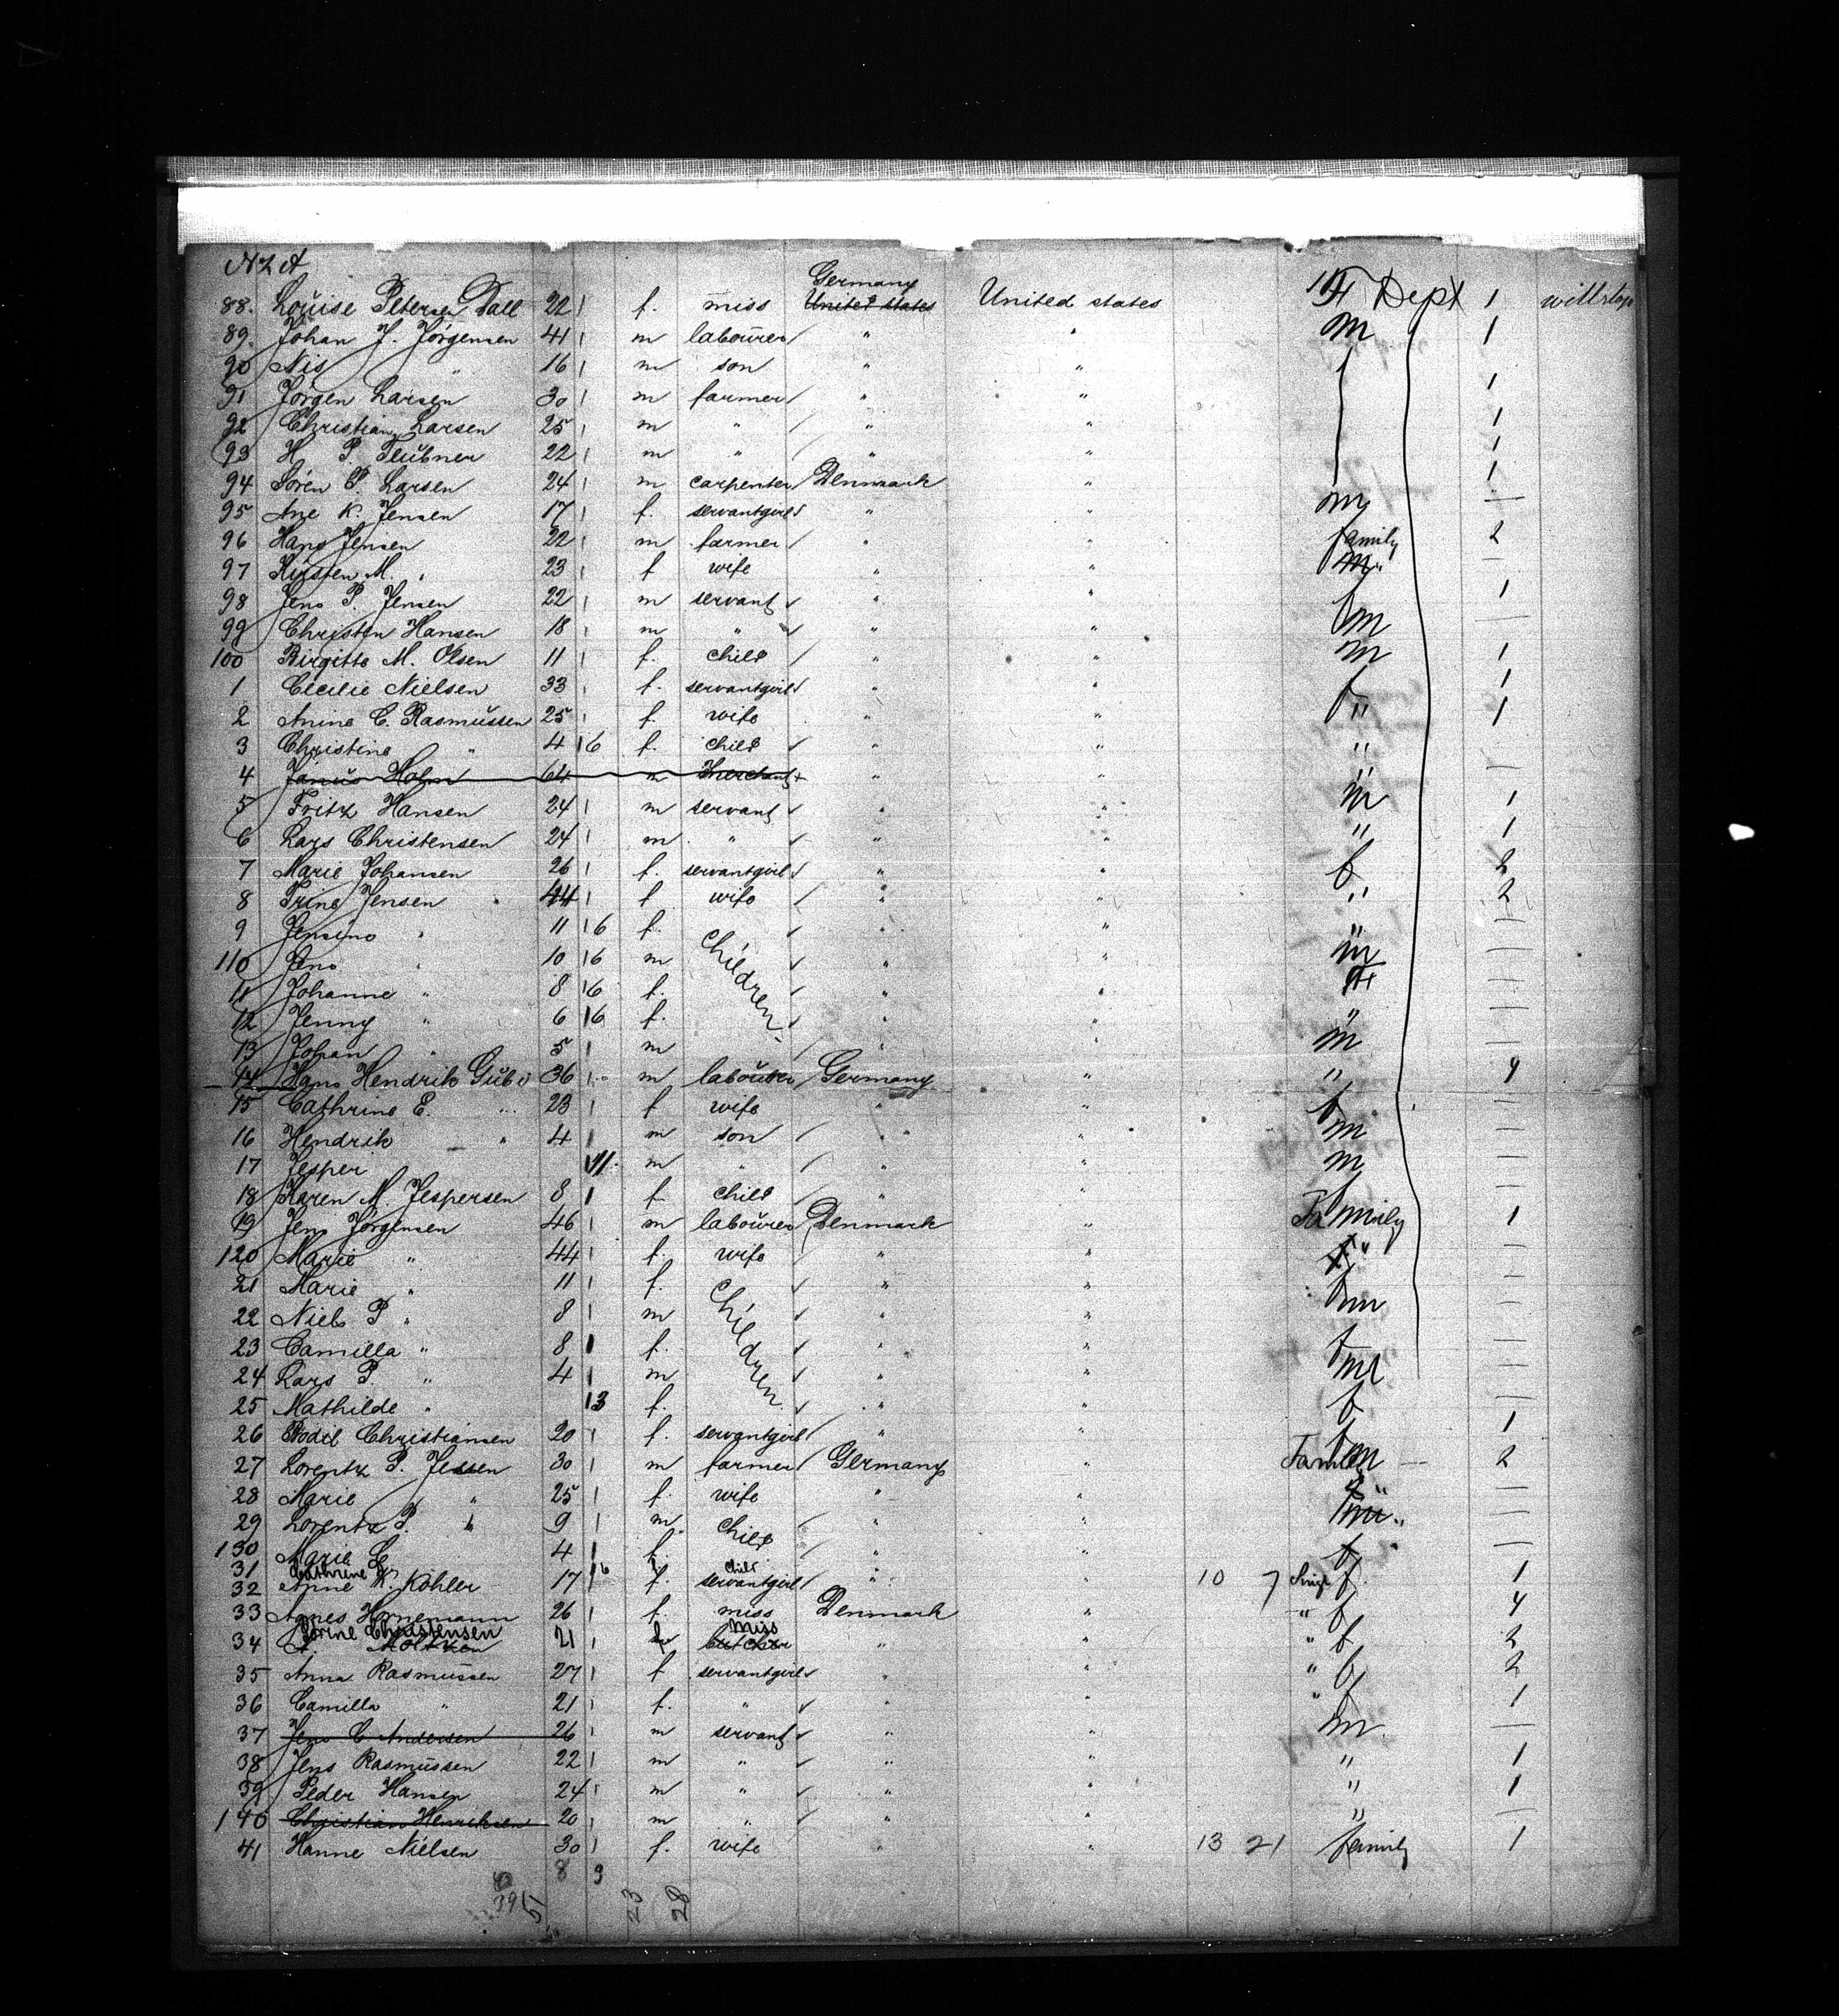 No 2 A
Germany
88. Louise Petersen Dall 22 f. miss United states United states F Dept 1
89. Johan J. Jörgensen 41 m labourer " " m 1
90 Nis " 16 m son " "
91 Jörgen Larsen 30 m farmer " " 1
92 Christian Larsen 25 m " " " 1
93 H P Teubner 22 m " " " 1
94 Sören P. Larsen 24 m carpenter Denmark " 1
95 Ane K. Jensen 17 f. servantgirl " " m —
96 Hans Jensen 22 m farmer " " family 2
97 Kirsten M. " 23 f wife " " —
98 Jens P. Jensen 22 m servant " " 1
99 Christen Hansen 18 m " " " m —
100 Birgitte M. Olsen 11 f. child " " m 1
1 Cecilie Nielsen 33 f. servantgirl " " 1
2 Anine C. Rasmussen 25 f. wife " " f " 1
3 Christine " 4 6 f. child " " " —
4 Janus Holm 64 m Merchant " " " —
5 Fritz Hansen 24 m servant " " m 1
6 Lars Christensen 24 m " " " " 1
7 Marie Johansen 26 f. servantgirl " " f 2
8 Trine Jensen 44 f wife " " " 2
9 Jensine " 11 6 f. " " " —
110 Jens " 10 6 m Children " " m —
11 Johanne " 8 6 f. " " —
12 Jenny " 6 6 f. " " " —
13 Johan " 5 m " " m —
14 Hans Hendrik Gubi 36 m labourer Germany " " 4
15 Cathrine E. " 23 f wife " " f —
16 Hendrik " 4 m son " " m —
17 Jesper 11 m " " " m —
18 Karen M. Jespersen 8 f child " " f —
19 Jens Jörgensen 46 m labourer Denmark " Family 1
120 Marie " 44 f. wife " " f " —
21 Marie " 11 f. " " f —
22 Niels P " 8 m Children " " m —
23 Camilla " 8 f. " " f —
24 Lars P. " 4 m " " m —
25 Mathilde " 3 f. " " f —
26 Bodil Christiansen 20 f. servantgirl " " f 1
27 Lorentz P. Jessen 30 m farmer Germany " Family — 2
28 Marie " 25 f. wife " " f " —
29 Lorentz P. " 9 m child " " m " —
130 Marie " 4 f. " " f —
31 Cathrine 6 f child
32 Anne K. Kohler 17 f. servantgirl " " 10 7 Singl f. 1
33 Agnes Hornemann 26 f. miss Denmark " " f 4
Sörine Christensen Miss
34 A. Moltzen 21 butcher " " " f 2
35 Anna Rasmussen 27 f servantgirl " " " f 2
36 Camilla " 21 f. " " " " f 1
37 Jens C Andersen 26 m servant " " m —
38 Jens Rasmussen 22 m " " " " 1
39 Peder Hansen 24 m " " " " 1
140 Christian Henriksen 20 m " " " " —
41 Hanne Nielsen 30 f. wife " " 13 21 family 1
8 9
39 51 23 28